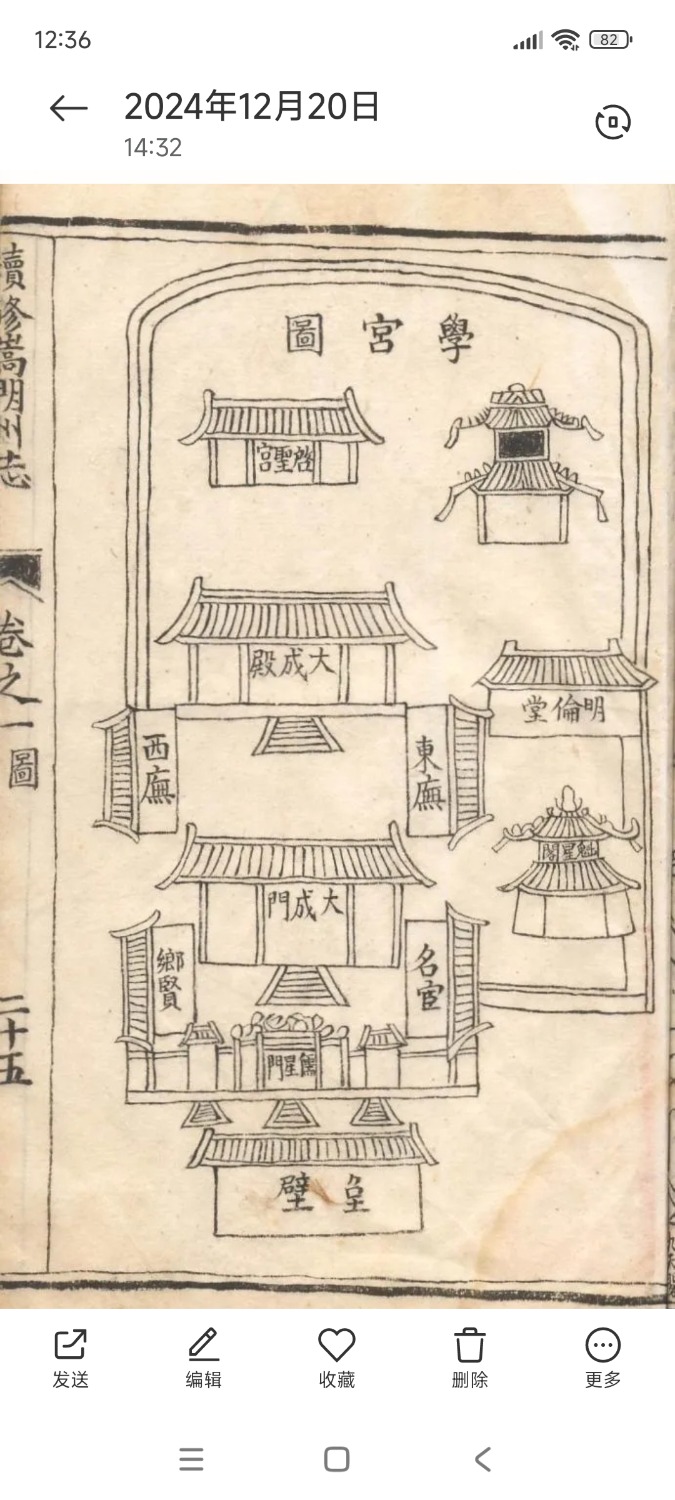 12:36
82
2024年12月20日
14:32
續修嵩明州志
卷之一
圖
二十五
學宮圖
啟聖宮
大成殿
明倫堂
東廡
西廡
魁星閣
大成門
名宦
鄉賢
門星
壁
发送
编辑
收藏
删除
更多